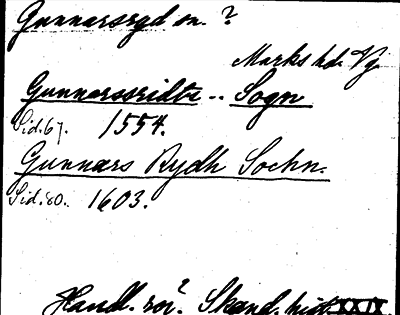 Gunnarsryd sn. ?
Marks hd. Vg.
Gunnarsridts .. Sogn
Sid. 67. 1554.
Gunnars Rydh Sochn.
Sid. 80. 1603.
Handl. rör? Skand. hist. XXIX.